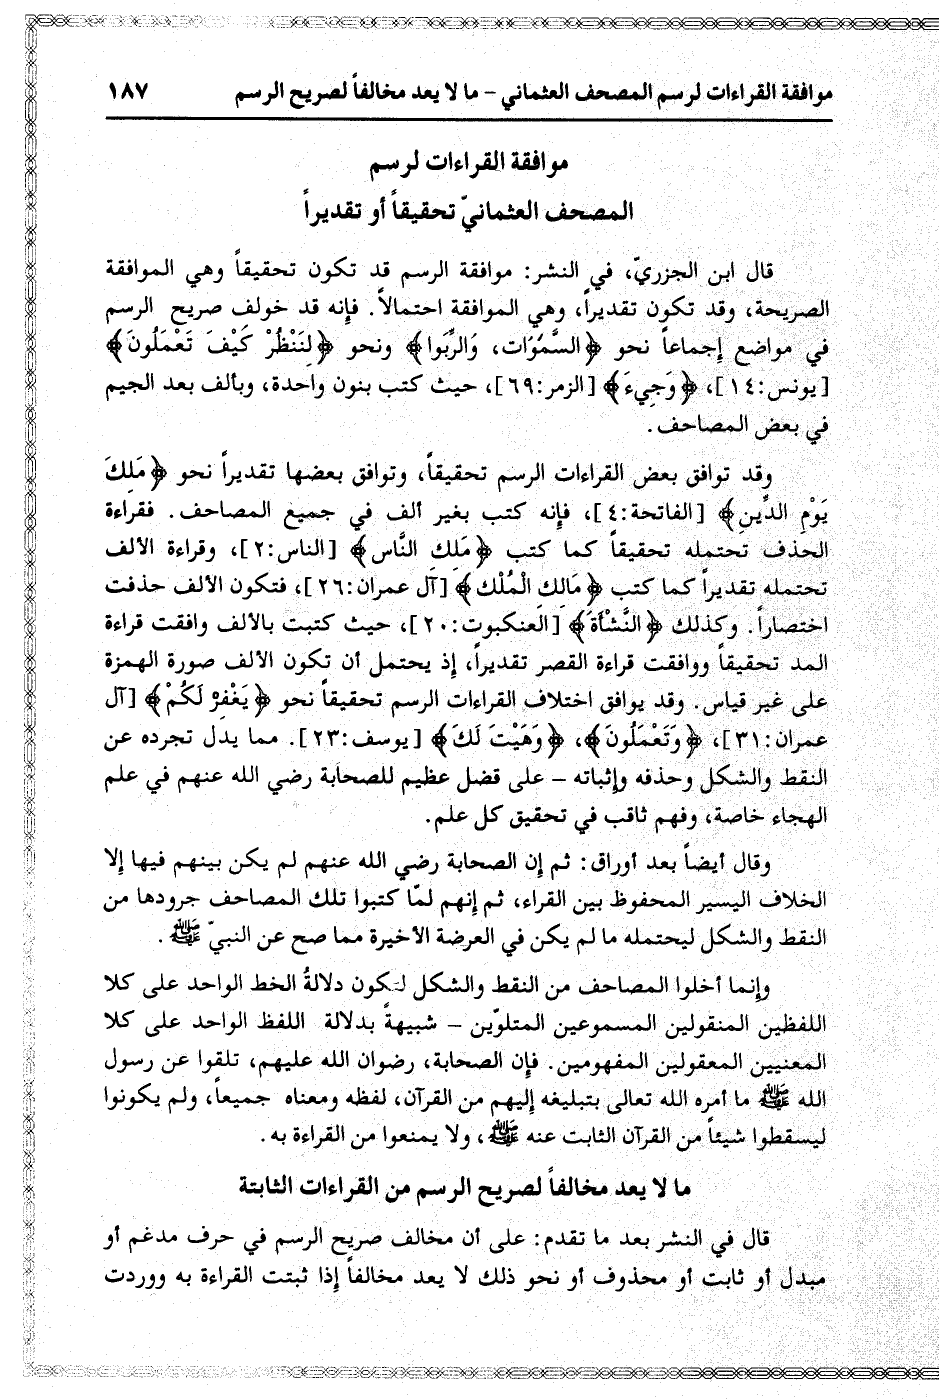 موافقة القراءات لرسم المصحف العثماني – ما لا يعد مخالفاً لصريح الرسم ١٨٧
موافقة القراءات لرسم
المصحف العثمانيّ تحقيقاً أو تقديراً
قال ابن الجزريّ، في النشر: موافقة الرسم قد تكون تحقيقاً وهي الموافقة
الصريحة، وقد تكون تقديراً، وهي الموافقة احتمالاً. فإنه قد خولف صريح الرسم
في مواضع إجماعاً نحو ﴿السَّمُوَات، وَالرِّبَوا﴾ ونحو ﴿لِنَنْظُرْ كَيْفَ تَعْمَلُونَ﴾
[يونس:١٤]، ﴿وَجِيءَ﴾ [الزمر:٦٩]، حيث كتب بنون واحدة، وبألف بعد الجيم
في بعض المصاحف.
وقد توافق بعض القراءات الرسم تحقيقاً، وتوافق بعضها تقديراً نحو ﴿مَلِكَ
يَوْمِ الدِّينِ﴾ [الفاتحة:٤]، فإنه كتب بغير ألف في جميع المصاحف. فقراءة
الحذف تحتمله تحقيقاً كما كتب ﴿مَلِكِ النَّاسِ﴾ [الناس:٢]، وقراءة الألف
تحتمله تقديراً كما كتب ﴿مَالِكِ الْمُلْك﴾ [آل عمران:٢٦]، فتكون الألف حذفت
اختصاراً. وكذلك ﴿النَّشْأَةَ﴾ [العنكبوت:٢٠]، حيث كتبت بالألف وافقت قراءة
المد تحقيقاً ووافقت قراءة القصر تقديراً، إذ يحتمل أن تكون الألف صورة الهمزة
على غير قياس. وقد يوافق اختلاف القراءات الرسم تحقيقاً نحو ﴿يَغْفِرْ لَكُمْ﴾ [آل
عمران:٣١]، ﴿وَتَعْمَلُونَ﴾، ﴿وَهَيْتَ لَكَ﴾ [يوسف:٢٣]. مما يدل تجرده عن
النقط والشكل وحذفه وإثباته – على فضل عظيم للصحابة رضي الله عنهم في علم
الهجاء خاصة، وفهم ثاقب في تحقيق كل علم.
وقال أيضاً بعد أوراق: ثم إن الصحابة رضي الله عنهم لم يكن بينهم فيها إلا
الخلاف اليسير المحفوظ بين القراء، ثم إنهم لمّا كتبوا تلك المصاحف جرودها من
النقط والشكل ليحتمله ما لم يكن في العرضة الأخيرة مما صح عن النبيّ ﷺ.
وإنما أخلوا المصاحف من النقط والشكل لتكون دلالةُ الخط الواحد على كلا
اللفظين المنقولين المسموعين المتلوّين – شبيهةً بدلالة اللفظ الواحد على كلا
المعنيين المعقولين المفهومين. فإن الصحابة، رضوان الله عليهم، تلقوا عن رسول
الله ﷺ ما أمره الله تعالى بتبليغه إليهم من القرآن، لفظه ومعناه جميعاً، ولم يكونوا
ليسقطوا شيئاً من القرآن الثابت عنه ﷺ، ولا يمنعوا من القراءة به.
ما لا يعد مخالفاً لصريح الرسم من القراءات الثابتة
قال في النشر بعد ما تقدم: على أن مخالف صريح الرسم في حرف مدغم أو
مبدل أو ثابت أو محذوف أو نحو ذلك لا يعد مخالفاً إذا ثبتت القراءة به ووردت